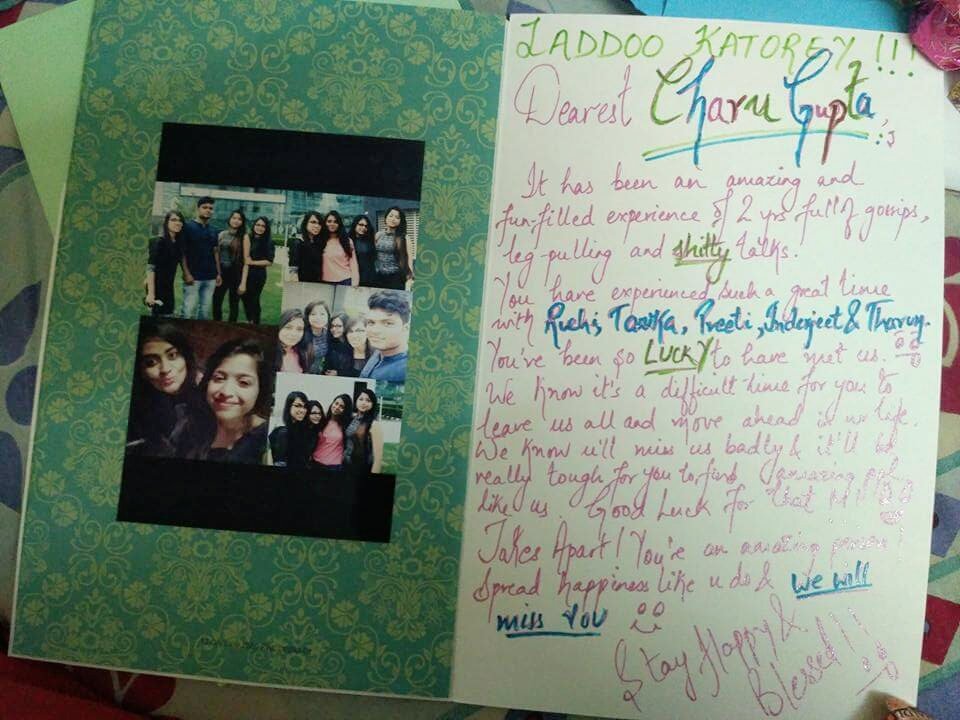 LADDOO KATOREY!!!
Dearest Charu Gupta, :)
It has been an amazing and
fun-filled experience of 2 yrs full of gossips,
leg-pulling and shitty talks.
You have experienced such a great time
with Ruchi, Tarika, Preeti, Inderjeet & Tharun.
You've been so LUCKY to have met us.
We know it's a difficult time for you to
leave us all and move ahead in ur life.
We know u'll miss us badly & it'll be
really tough for you to find amazing ppl
like us. Good Luck for that
Jokes Apart! You're an amazing person!
Spread happiness like u do & we will
miss you
Stay Happy &
Blessed!!